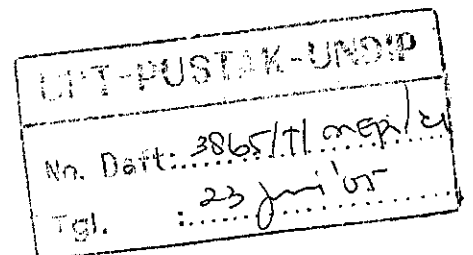 UPT-PUSTAK-UNDIP
No. Daft: 3865/T/MEPI/
Tgl. : 23 Juni '05